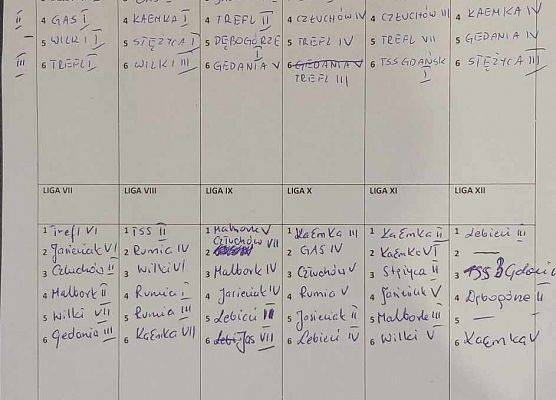 II 4 GAS I 4 KAEMKA I 4 TREFL II 4 CZŁUCHÓW IV 4 CZŁUCHÓW III 4 KAEMKA IV
5 WILKI I 5 STĘŻYCA I 5 DĘBOGÓRZE I 5 TREFL IV 5 TREFL VII 5 GEDANIA IV
III 6 TREFL I 6 WILKI III 6 GEDANIA V 6 GEDANIA V TREFL III 6 TSS GDAŃSK I 6 STĘŻYCA III
LIGA VII LIGA VIII LIGA IX LIGA X LIGA XI LIGA XII
1 Trefl VI 1 TSS II 1 Malbork V 1 KaEmKa III 1 KaEmKa II 1 Lębicci III
2 Jasieniak VI 2 Rumia IV 2 Człuchów VII 2 GAS IV 2 KaEmKa VI 2 —
3 Człuchów II 3 Wilki VI 3 Malbork IV 3 Człuchów V 3 Stężyca II 3 TSS Gdańsk
4 Malbork II 4 Rumia I 4 Jasieniak IV 4 Rumia V 4 Jasieniak V 4 Dębogórze II
5 Wilki VII 5 Rumia III 5 III 5 Jasieniak II 5 Malbork III 5 —
6 Gedania III 6 KaEmKa VII 6 Jas VII 6 IV 6 Wilki V 6 KaEmKa V